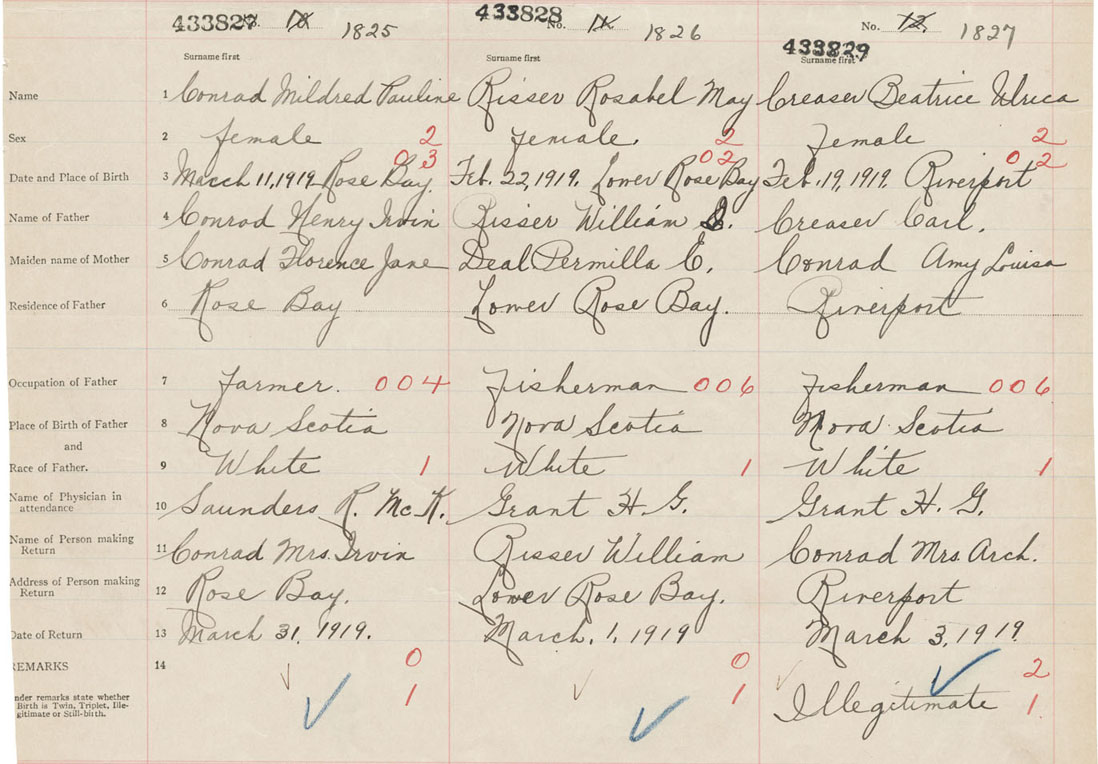 433827 No. 10 1825 433828 No. 11 1826 No. 12. 1827
433829
Surname first Surname first Surname first
Name 1 Conrad Mildred Pauline Risser Rosabel May Creaser Beatrice Ulrica
Sex 2 female 2 female. 2 Female 2
0 3 0 2 0 2
Date and Place of Birth 3 March 11, 1919 Rose Bay. Feb. 22, 1919. Lower Rose Bay Feb. 19, 1919. Riverport
Name of Father 4 Conrad Henry Irvin Risser William S. Creaser Carl.
Maiden name of Mother 5 Conrad Florence Jane Deal Permilla E. Conrad Amy Louisa
Residence of Father 6 Rose Bay Lower Rose Bay. Riverport
Occupation of Father 7 Farmer. 004 Fisherman 006 Fisherman 006
Place of Birth of Father 8 Nova Scotia Nova Scotia Nova Scotia
and
Race of Father. 9 White 1 White 1 White 1
Name of Physician in
attendance 10 Saunders R. McK. Grant H. G. Grant H. G.
Name of Person making
Return 11 Conrad Mrs. Irvin Risser William Conrad Mrs Arch.
Address of Person making
Return 12 Rose Bay. Lower Rose Bay. Riverport
Date of Return 13 March 31, 1919. March. 1, 1919 March 3, 1919
REMARKS 14 0 0 2
nder remarks state whether
Birth is Twin, Triplet, Ille-
gitimate or Still-birth. 1 1 Illegitimate 1